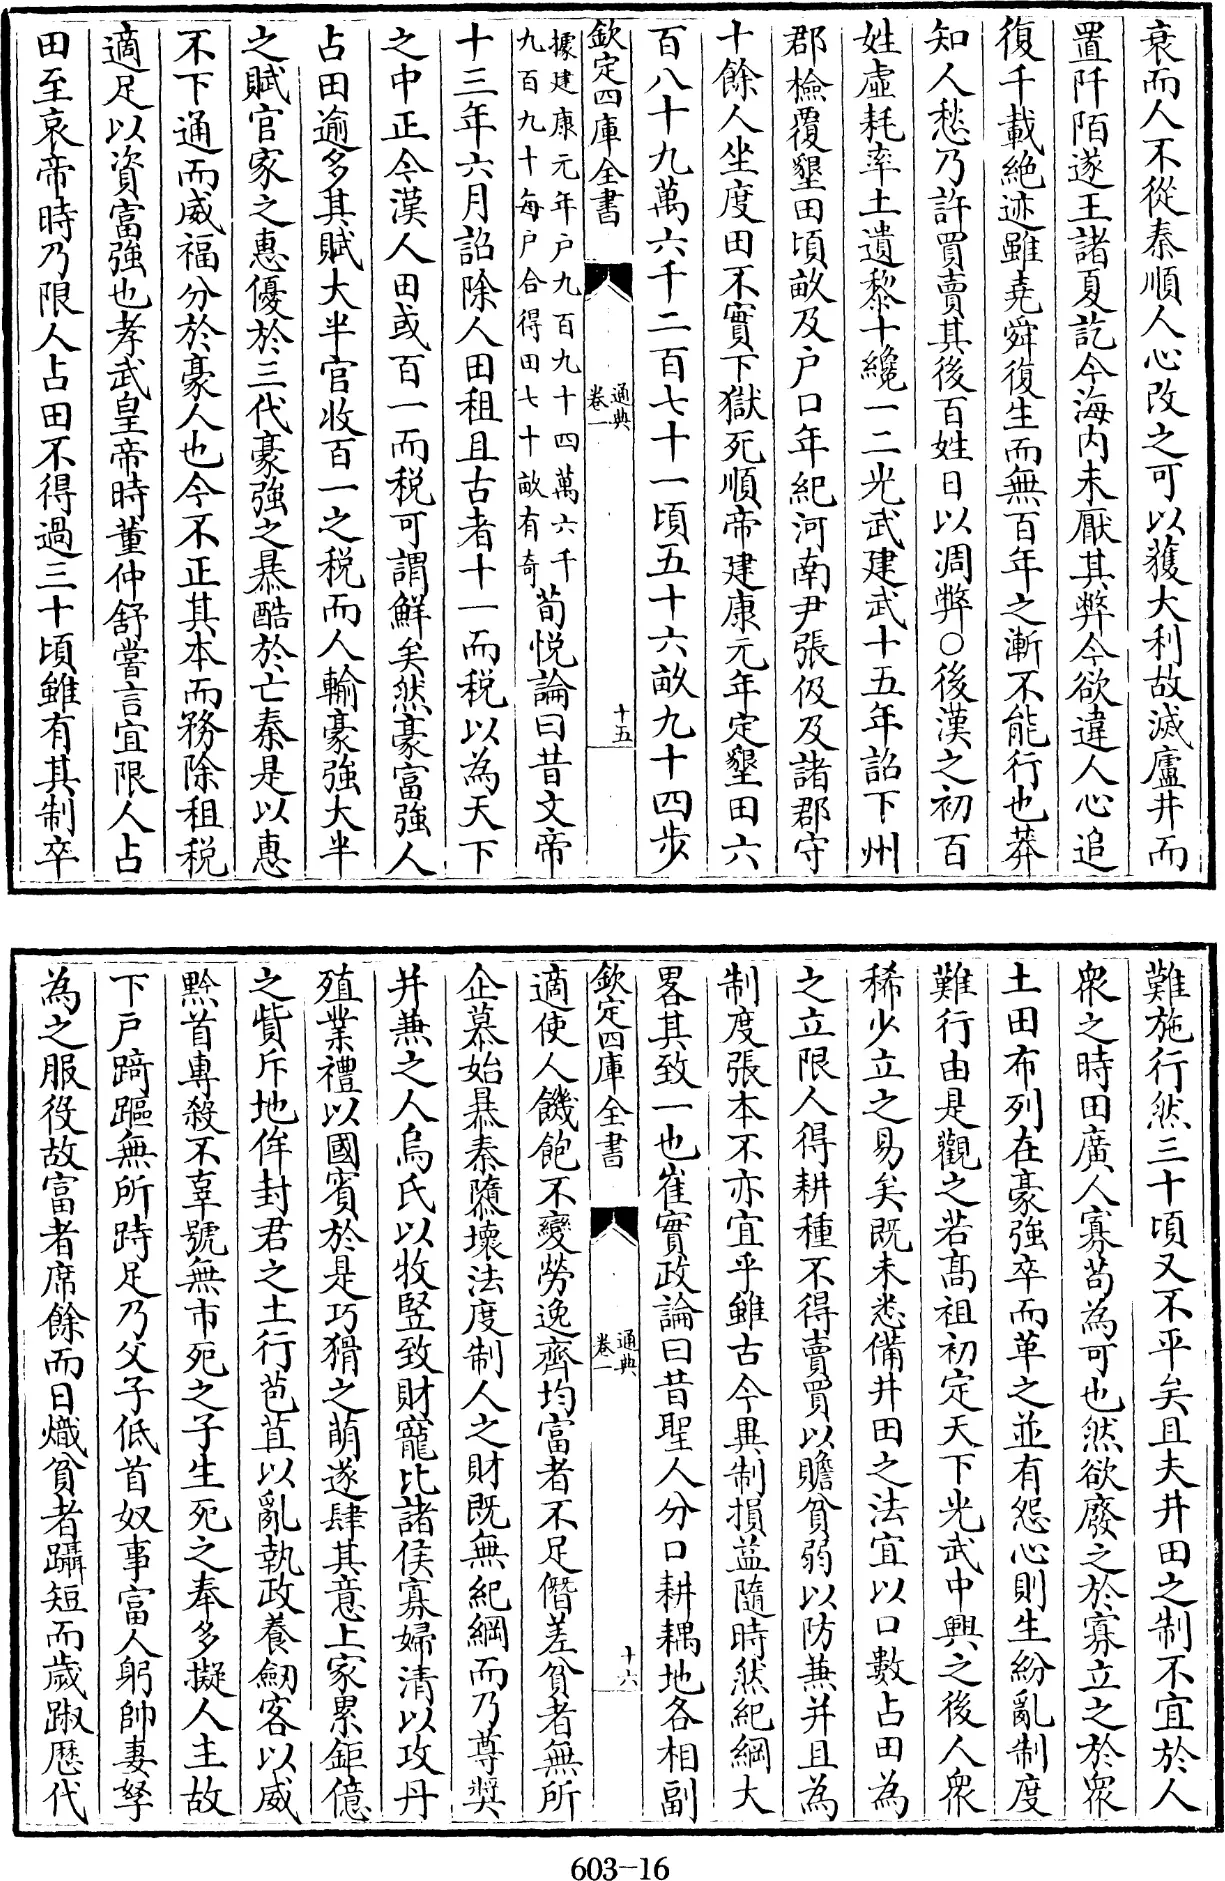 衰而人不從秦順人心改之可以獲大利故滅廬井而
置阡陌遂王諸夏訖今海内未厭其弊今欲違人心追
復千載絶迹雖堯舜復生而無百年之漸不能行也莽
知人愁乃許買賣其後百姓日以凋弊○後漢之初百
姓虚耗率土遺黎十纔一二光武建武十五年詔下州
郡檢覆墾田頃畝及户口年紀河南尹張伋及諸郡守
十餘人坐度田不實下獄死順帝建康元年定墾田六
百八十九萬六千二百七十一頃五十六畝九十四步
欽定四庫全書
通典
卷一
十五
據建康元年户九百九十四萬六千
九百九十每户合得田七十畝有奇
荀悦論曰昔文帝
十三年六月詔除人田租且古者十一而税以為天下
之中正今漢人田或百一而税可謂鮮矣然豪富強人
占田逾多其賦大半官收百一之税而人輸豪強大半
之賦官家之惠優於三代豪強之暴酷於亡秦是以惠
不下通而威福分於豪人也今不正其本而務除租税
適足以資富強也孝武皇帝時董仲舒嘗言宜限人占
田至哀帝時乃限人占田不得過三十頃雖有其制卒
難施行然三十頃又不平矣且夫井田之制不宜於人
衆之時田廣人寡茍為可也然欲廢之於寡立之於衆
土田布列在豪強卒而革之並有怨心則生紛亂制度
難行由是觀之若髙祖初定天下光武中興之後人衆
稀少立之易矣既未悉備井田之法宜以口數占田為
之立限人得耕種不得賣買以贍貧弱以防兼并且為
制度張本不亦宜乎雖古今異制損益隨時然紀綱大
畧其致一也崔寔政論曰昔聖人分口耕耦地各相副
欽定四庫全書
通典
卷一
十六
適使人饑飽不變勞逸齊均富者不足僭差貧者無所
企慕始暴秦隳壞法度制人之財既無紀綱而乃尊奬
并兼之人烏氏以牧豎致財寵比諸侯寡婦清以攻丹
殖業禮以國賓於是巧猾之萌遂肆其意上家累鉅億
之貲斥地侔封君之土行苞苴以亂執政養劒客以威
黔首専殺不辜號無市死之子生死之奉多擬人主故
下户踦䠓無所跱足乃父子低首奴事富人躬帥妻孥
為之服役故富者席餘而日熾貧者躡短而嵗踧厯代